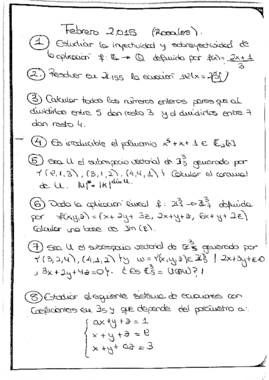 Febrero 2.015 (Rosales).
① Estudiar la inyectividad y sobreyectividad de
la aplicación f: Z → Q definida por f(x) = 2x+1/3
② Resolver en Z155 la ecuación
③ Calcular todos los números enteros pares que al
dividirlos entre 5 dan resto 3 y al dividirlos entre 7
dan resto 4.
④ Es irreducible el polinomio x⁵+x+1 ∈ Z₂[x]
⑤ Sea U el subespacio vectorial de Z₅³ generado por
Calcular el cardinal
de U.
⑥ Dada la aplicación lineal f: definida
por f(x,y,z) = (x+2y+3z, 2x+y+z, 6x+y+2z)
Calcular una base de Im(f).
⑦ Sea U el subespacio vectorial de generado por
{(3,2,4), (4,1,2)} y W = {(x,y,z) ∈ | 2x+3y+z=0
, 3x+2y+4z=0}. ¿Es = U⊕W?
⑧ Estudiar el siguiente sistema de ecuaciones con
coeficientes en Z₅ y que depende del parámetro a:
ax+y+z = 1
x+y+z = 2
x+y+az = 3